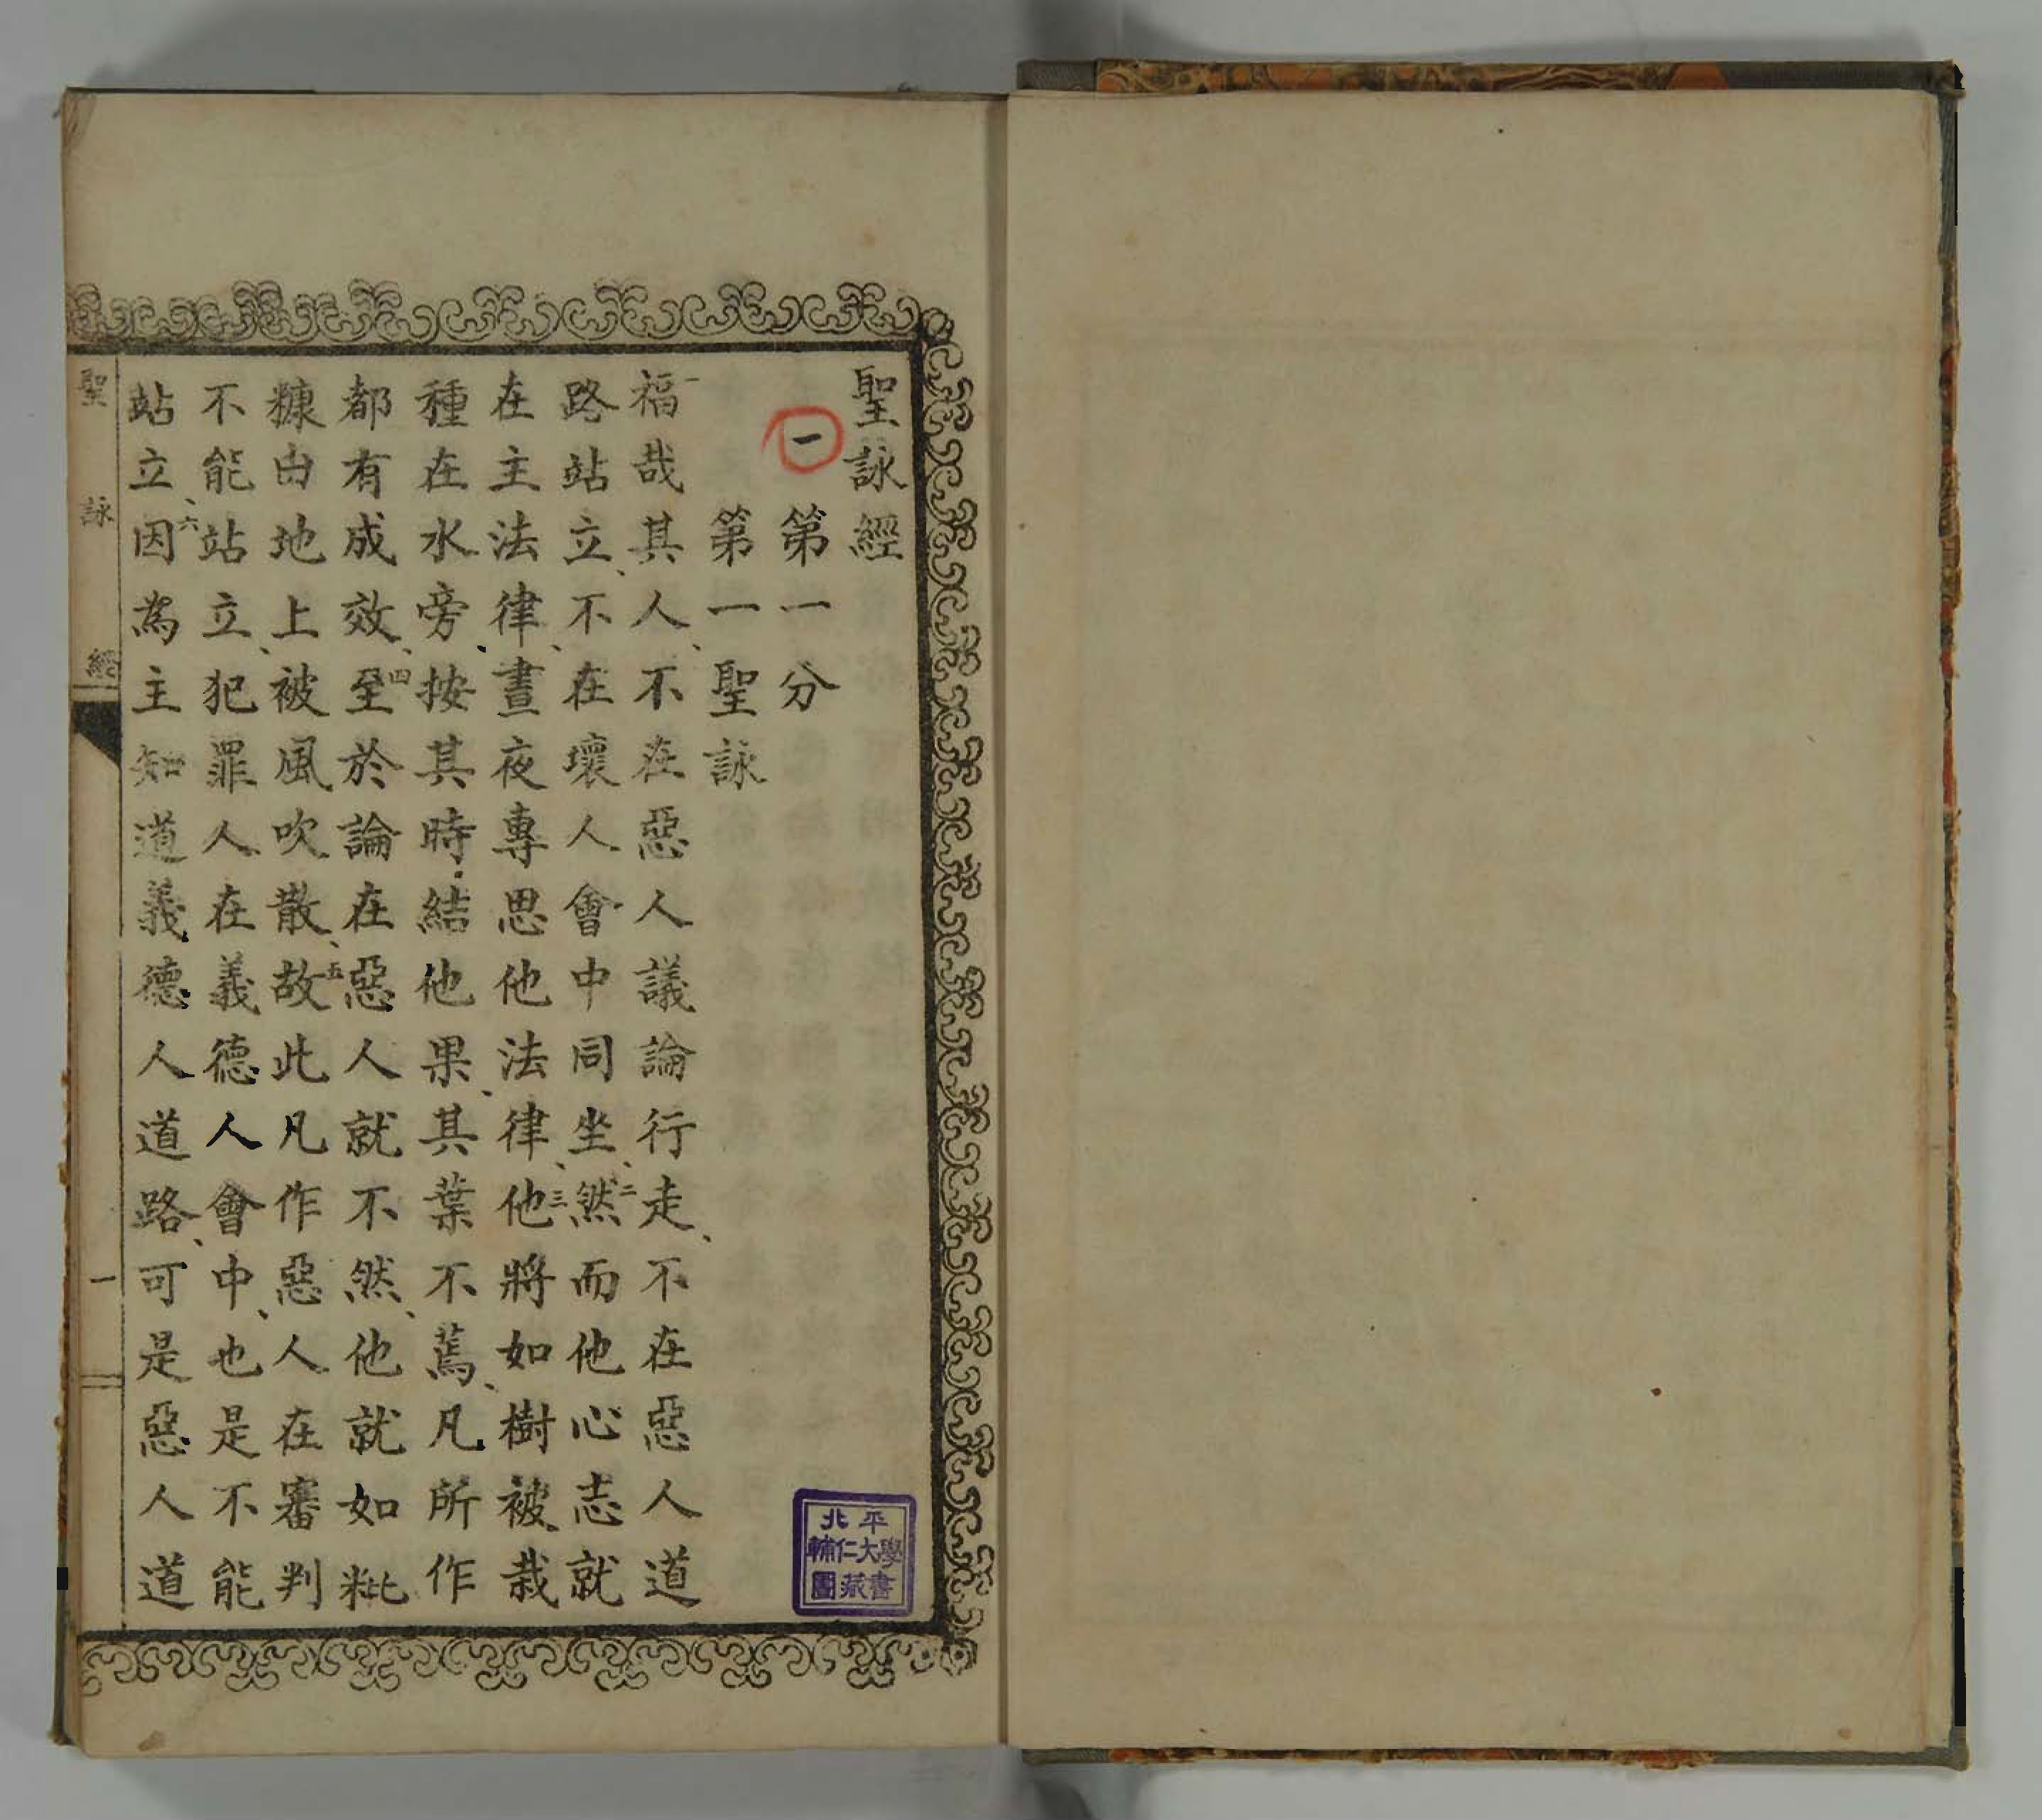 聖詠經
一
第一分
第一聖詠
一福哉其人、不在惡人議論行走、不在惡人道
路站立、不在壞人會中同坐、二然而他心志就
在主法律、晝夜專思他法律、三他將如樹被栽
種在水旁、按其時結他果、其葉不蔫、凡所作
都有成效、四至於論在惡人就不然、他就如粃
糠由地上被風吹散、五故此凡作惡人在審判
不能站立、犯罪人在義德人會中、也是不能
站立、六因為主知道義德人道路、可是惡人道
聖詠經
一
北平
輔仁大學
圖書藏書